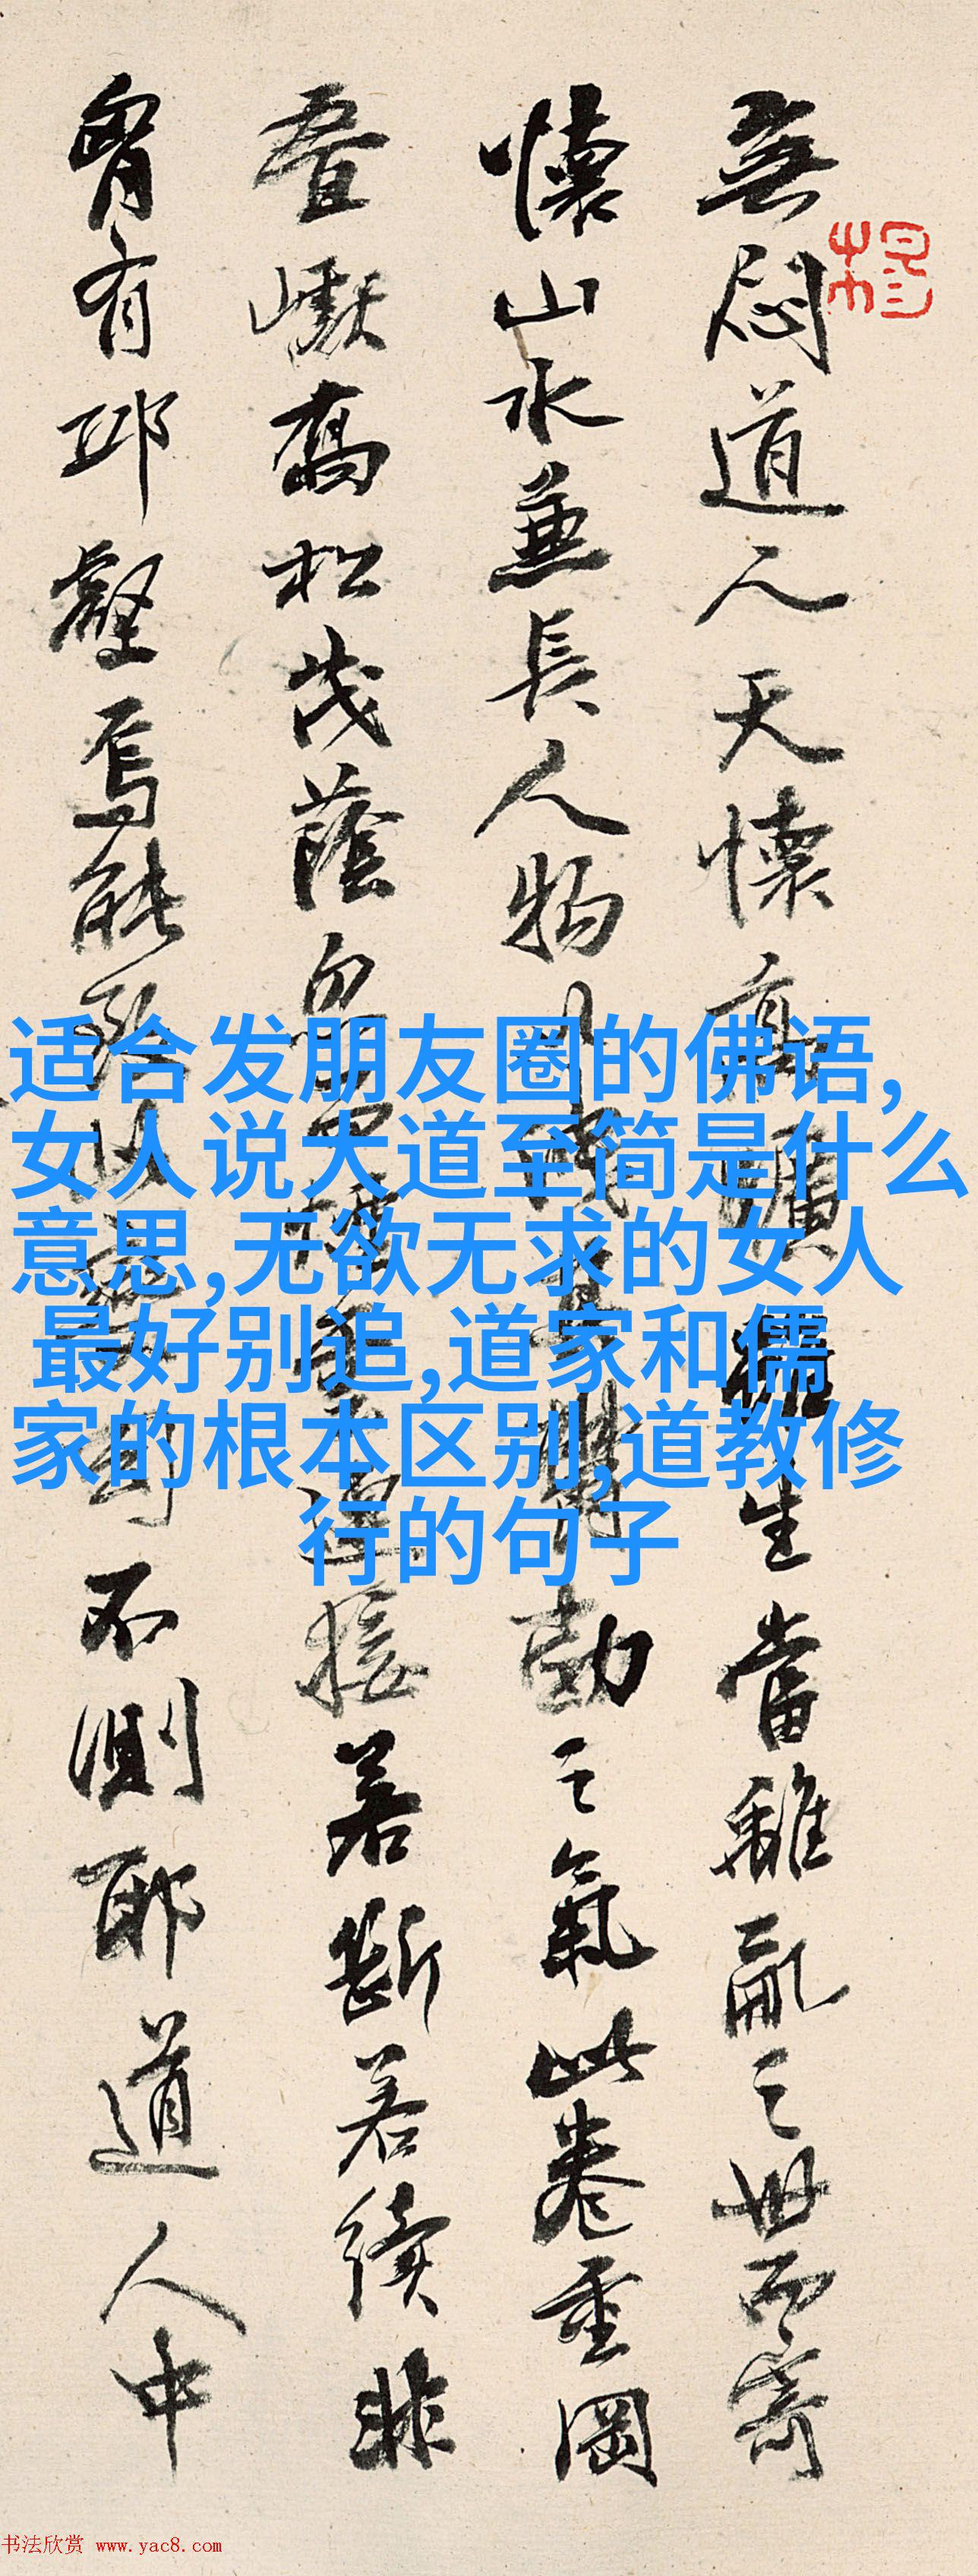 無悶道人天懷高曠獨生當離亂之世而寄
懷山水兼長人物 勁之氣此卷重岡
疊巘喬松茂蔭 接若斷若續非
胷有邱壑焉能 不測耶道人中
楊
适合发朋友圈的佛语,
女人说大道至简是什么
意思,无欲无求的女人
最好别追,道家和儒
家的根本区别,道教修
行的句子
书法欣赏 www.yac8.com